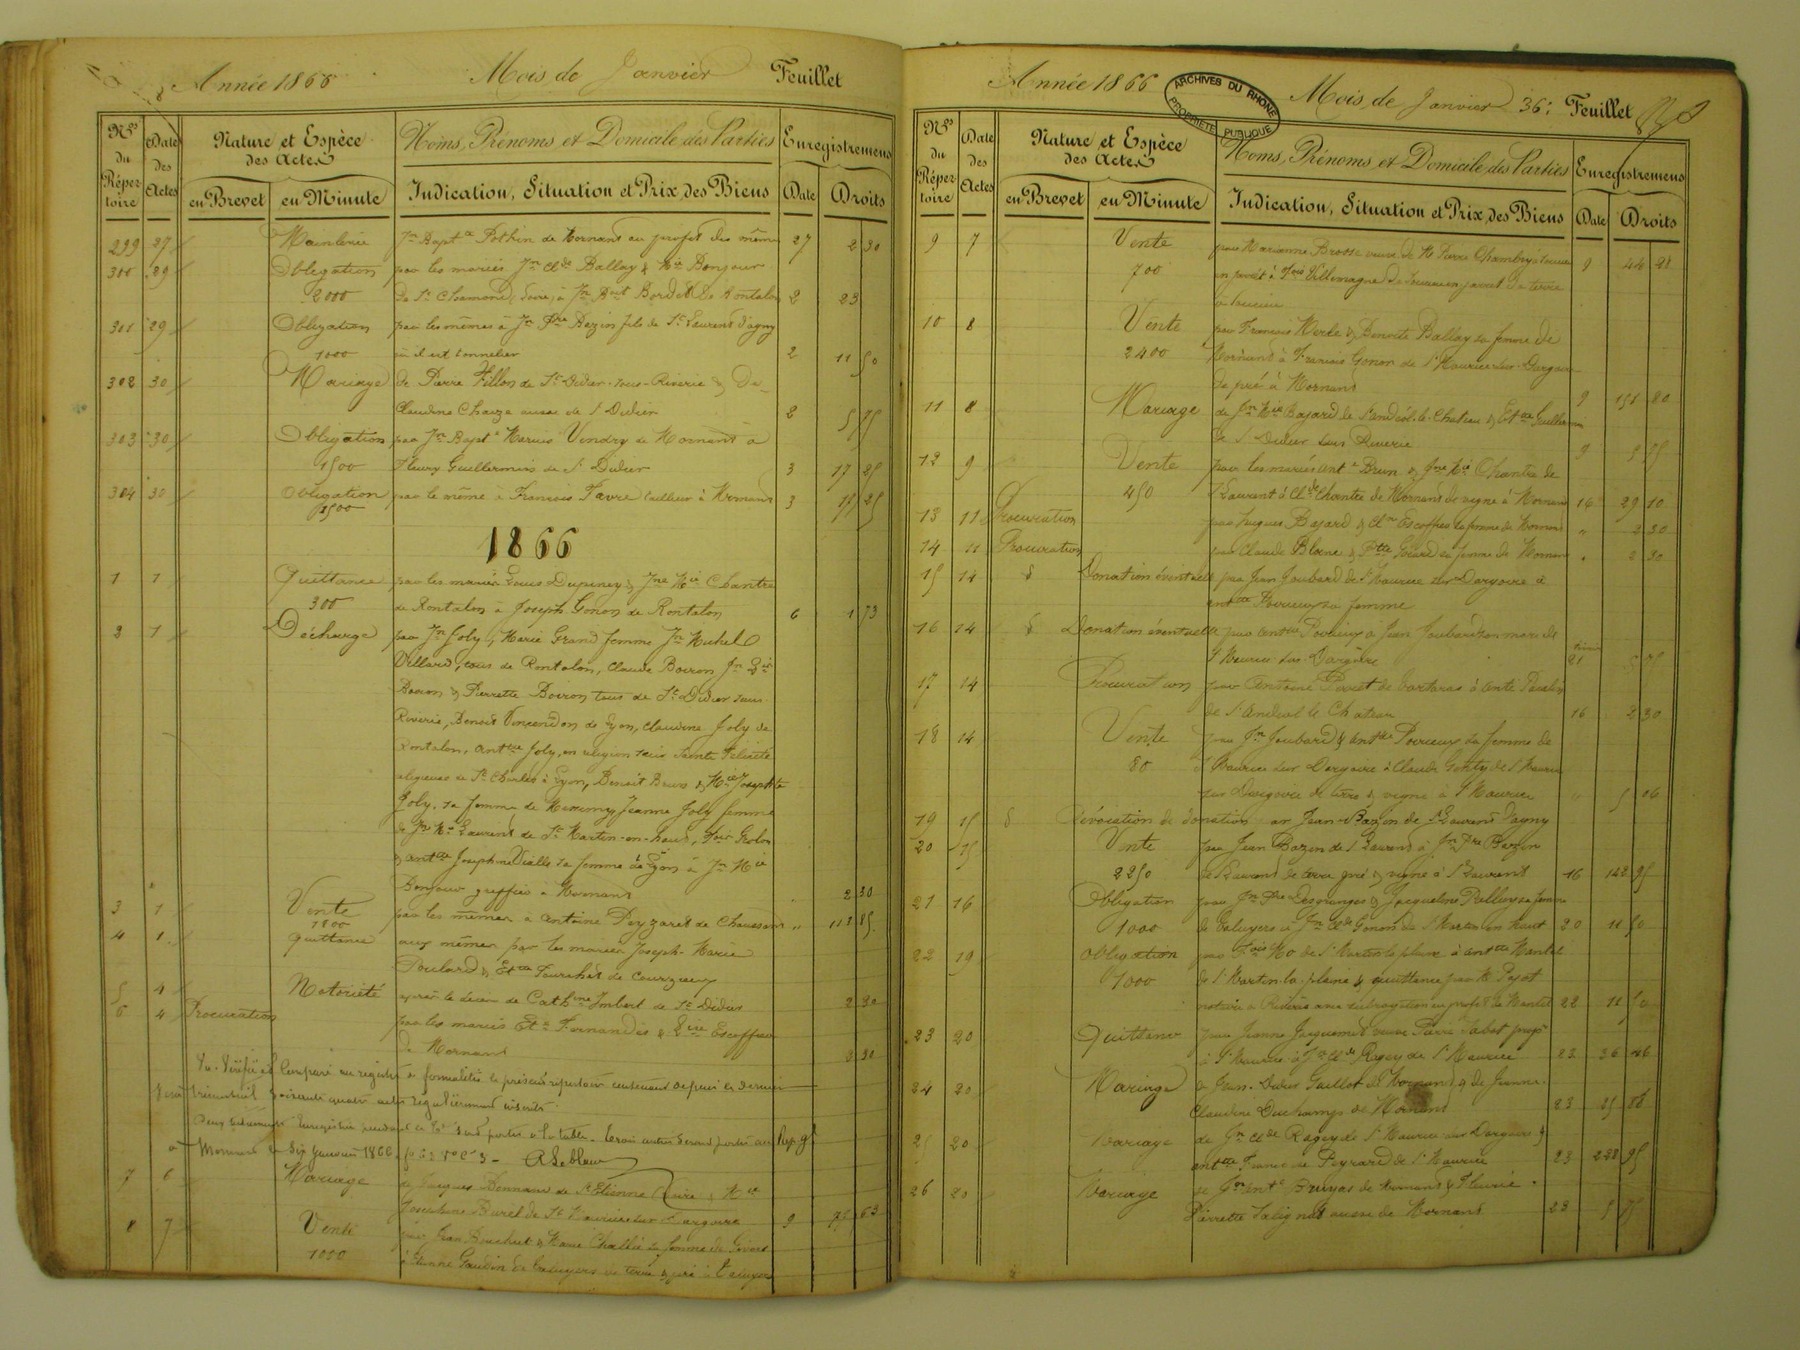 Année 1866 Mois de Janvier Feuillet
Nos du Répertoire
Date des Actes
Nature et Espèce des Actes
en Brevet
en Minute
Noms, Prénoms et Domicile des Parties
Indication, Situation et Prix des Biens
Enregistremens
Date
Droits
299 27 Mainlevée Jn Bapte Pothin de Mornant au profit des mêmes 27 2 30
300 29 Obligation par les mariés Jn Clde Ballay & Mie Bonjour
2000 de St Chamond, Loire, à Jn Bapt de Rontalon 2 23
301 29 Obligation par les mêmes à Jn Pre fils de St Laurent d'agny
1000 où il est tonnelier 2 11 50
302 30 Mariage de Pierre Villon de St Didier-sous-Riverie & de
Claudine Chaize aussi de St Didier 2 5 75
303 30 Obligation par Jn Bapte Marius Vendry de Mornant à
1500 Fleury Guillermin de St Didier 3 17 25
304 30 Obligation par le même à François Favre tailleur à Mornant
1500 3 17 25
1866
1 1 Quittance par les mariés Louis Dupiney & Jne Mie Chantre
300 de Rontalon à Joseph Gonon de Rontalon 6 1 73
2 1 Décharge par Jn Joly, Marie Grand femme Jn Michel
Villard, tous de Rontalon, Claude Boiron Jn
Boiron & Pierrette Boiron tous de St Didier sous
Riverie, Benoit Vincendon de Lyon, Claudine Joly de
Rontalon, Antte Joly, en religion sœur Sainte Félicité
religieuse de St Charles à Lyon, Benoit Brun & Mie Josephte
Joly, sa femme de Jeanne Joly femme
de Jn Mie Laurent de St Martin-en-haut,
& Antte Joséphine Vialle sa femme de Lyon à Jn Mie
Bonjour greffier à Mornant 2 30
3 1 Vente par les mêmes à Antoine Peyzaret de Chaussan " 118 85
1800
4 1 Quittance aux mêmes par les mariés Joseph-Marie
Poulard & Ette de Courzieu
5 4 Notoriété après le décès de Cathne Imbert de St Didier 2 30
6 4 Procuration par les mariés Ete Fernandès & Escoffier
de Mornant 2 30
Vu, Vérifié et Comparé au registre de formalités le présent répertoire contenant depuis le dernier
Visa trimestriel soixante quatre actes régulièrement inscrits.
à Mornant le Six Janvier 1866 Leblanc
7 6 Mariage de Jacques Bonnand de St Etienne Loire & Mie
Joséphine Burel de St Maurice sur Dargoire 9 75 63
8 7 Vente par Jean Bouchut & Marie sa femme de Givors
1000 à Etienne Gaudin de Taluyers de terre & pré à Taluyers
Année 1866 Mois de Janvier 36e Feuillet
ARCHIVES DU RHONE
PROPRIÉTÉ PUBLIQUE
Nos du Répertoire
Date des Actes
Nature et Espèce des Actes
en Brevet
en Minute
Noms, Prénoms et Domicile des Parties
Indication, Situation et Prix des Biens
Enregistremens
Date
Droits
9 7 Vente par Marianne Brosse veuve de Pierre Chambry à Soucieu
700 en jarret à Villemagne de Soucieu en jarret de terre 9 44 28
à Soucieu
10 8 Vente par François Merle & Benoite Ballay sa femme de
2400 Mornant à Francois Gonon de St Maurice-sur-Dargoire
de pré à Mornant 9 151 80
11 8 Mariage de Jn Mie Bajard de St andéol-le-Chateau & Ette Guillermin
de St Didier sous Riverie 9 5 75
12 9 Vente par les mariés Ante Brun & Jne Mie Chantre de
450 St Laurent à Clde Chantre de Mornant de vigne à Mornant 16 29 10
13 11 Procuration par Jacques Bajard & Clne Escoffier sa femme de Mornant " 2 30
14 11 Procuration par Claude Blanc & Ptte Girard sa femme de Mornant " 2 30
15 14 Donation éventuelle par Jean Joubard de St Maurice sur Dargoire à
antte Poirieux sa femme
16 14 Donation éventuelle par antte Poirieux à Jean Joubard son mari de
St Maurice sur Dargoire 21 5 75
17 14 Procuration par Antoine de à ante
de St Andéol le Chateau 16 2 30
18 14 Vente par Jn Joubard & antte Poirieux sa femme de
80 St Maurice sur Dargoire à Claude Gonty de St Maurice
sur Dargoire de terre & vigne à St Maurice " 5 06
19 15 Révocation de donation par Jean Bazin de St Laurent d'agny
20 15 Vente par Jean Bazin de St Laurent à Jn Pre Bazin
2250 de St Laurent de terre pré & vigne à St Laurent 16 142 95
21 16 Obligation par Jn Pre Desgranges & Jacqueline sa femme
1000 de Taluyers à Jn Cde Gonon de St Martin en haut 20 11 50
22 19 Obligation par Fois de St Martin la plaine à antte
1000 de St Martin-la-plaine & quittance par Me Pajot
notaire à Riverie avec subrogation au profit de 22 11 50
23 20 Quittance par Jeanne Jacquemet veuve Pierre
à St Maurice à Jn Cde Ragey de St Maurice 23 36 86
24 20 Mariage de Jean-Didier Guillot de Mornant & de Jeanne
Claudine Duchamp de Mornant 23 25 88
25 20 Mariage de Jn Cde Ragey de St Maurice sur Dargoire &
antte Francoise Peyrard de St Maurice 23 228 95
26 20 Mariage de Jn ante Bruyas de Mornant & Fleurie
Pierrette aussi de Mornant 23 5 75